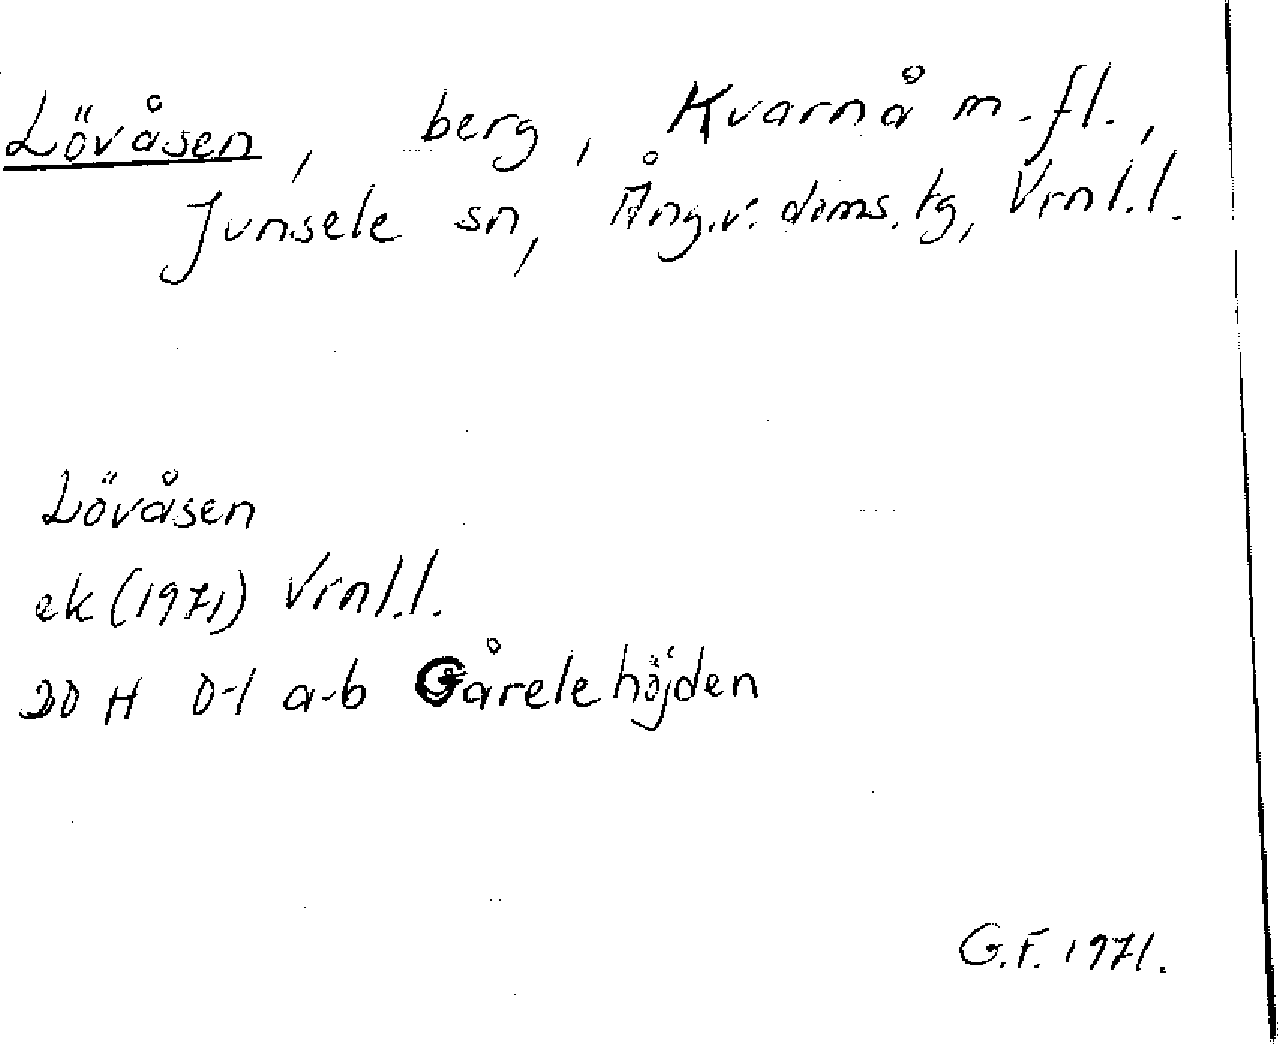 Lövåsen, berg, Kvarnå m.fl.,
Junsele sn, Ång.v. doms.tg, Vrnl.l.
Lövåsen
ek (1971) Vrnl.l.
20 H 0-1 a-b Gårelehöjden
G.F. 1971.